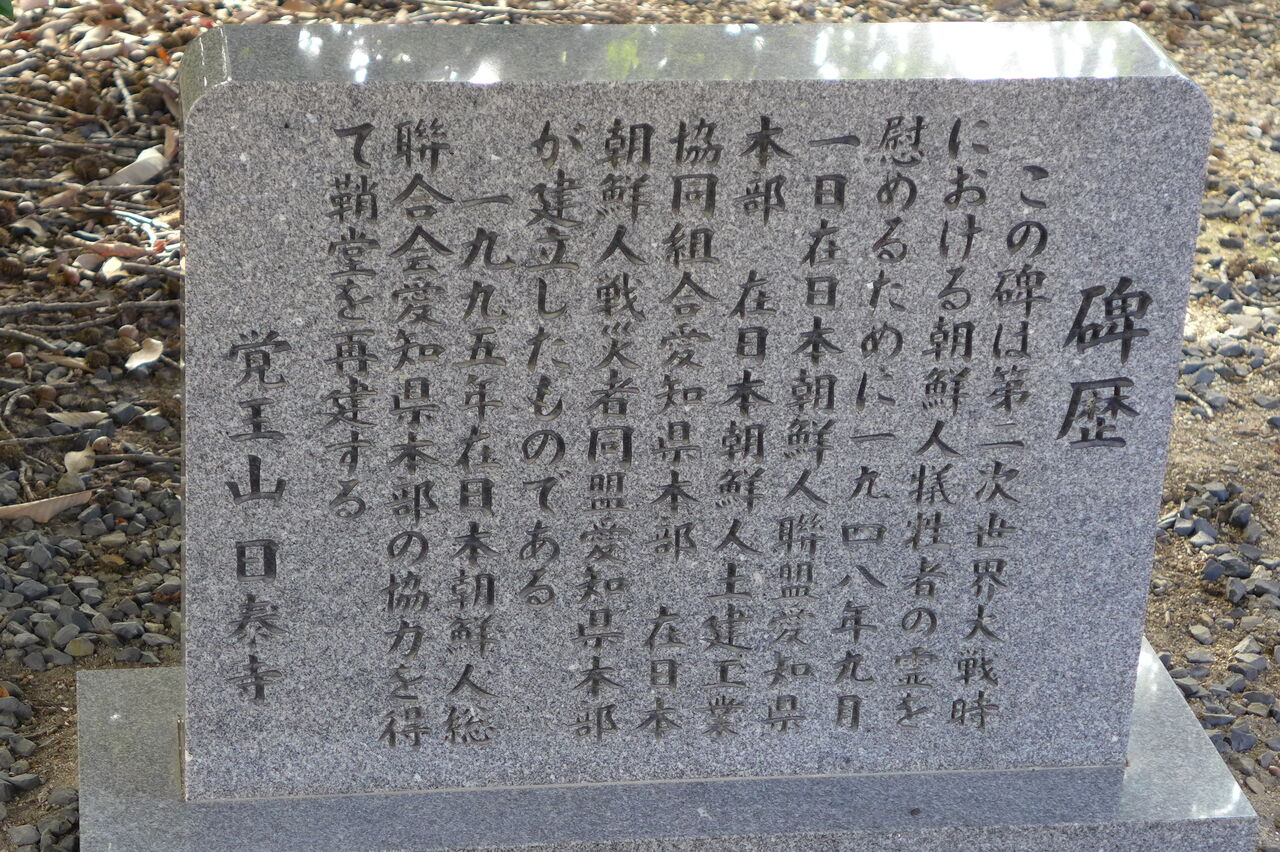 碑歴
この碑は第二次世界大戦時
における朝鮮人犠牲者の霊を
慰めるために一九四八年九月
一日在日本朝鮮人聯盟愛知県
本部　在日本朝鮮人土建工業
協同組合愛知県本部　在日本
朝鮮人戦災者同盟愛知県本部
が建立したものである
一九九五年在日本朝鮮人総
聯合会愛知県本部の協力を得
て鞘堂を再建する
覚王山日泰寺